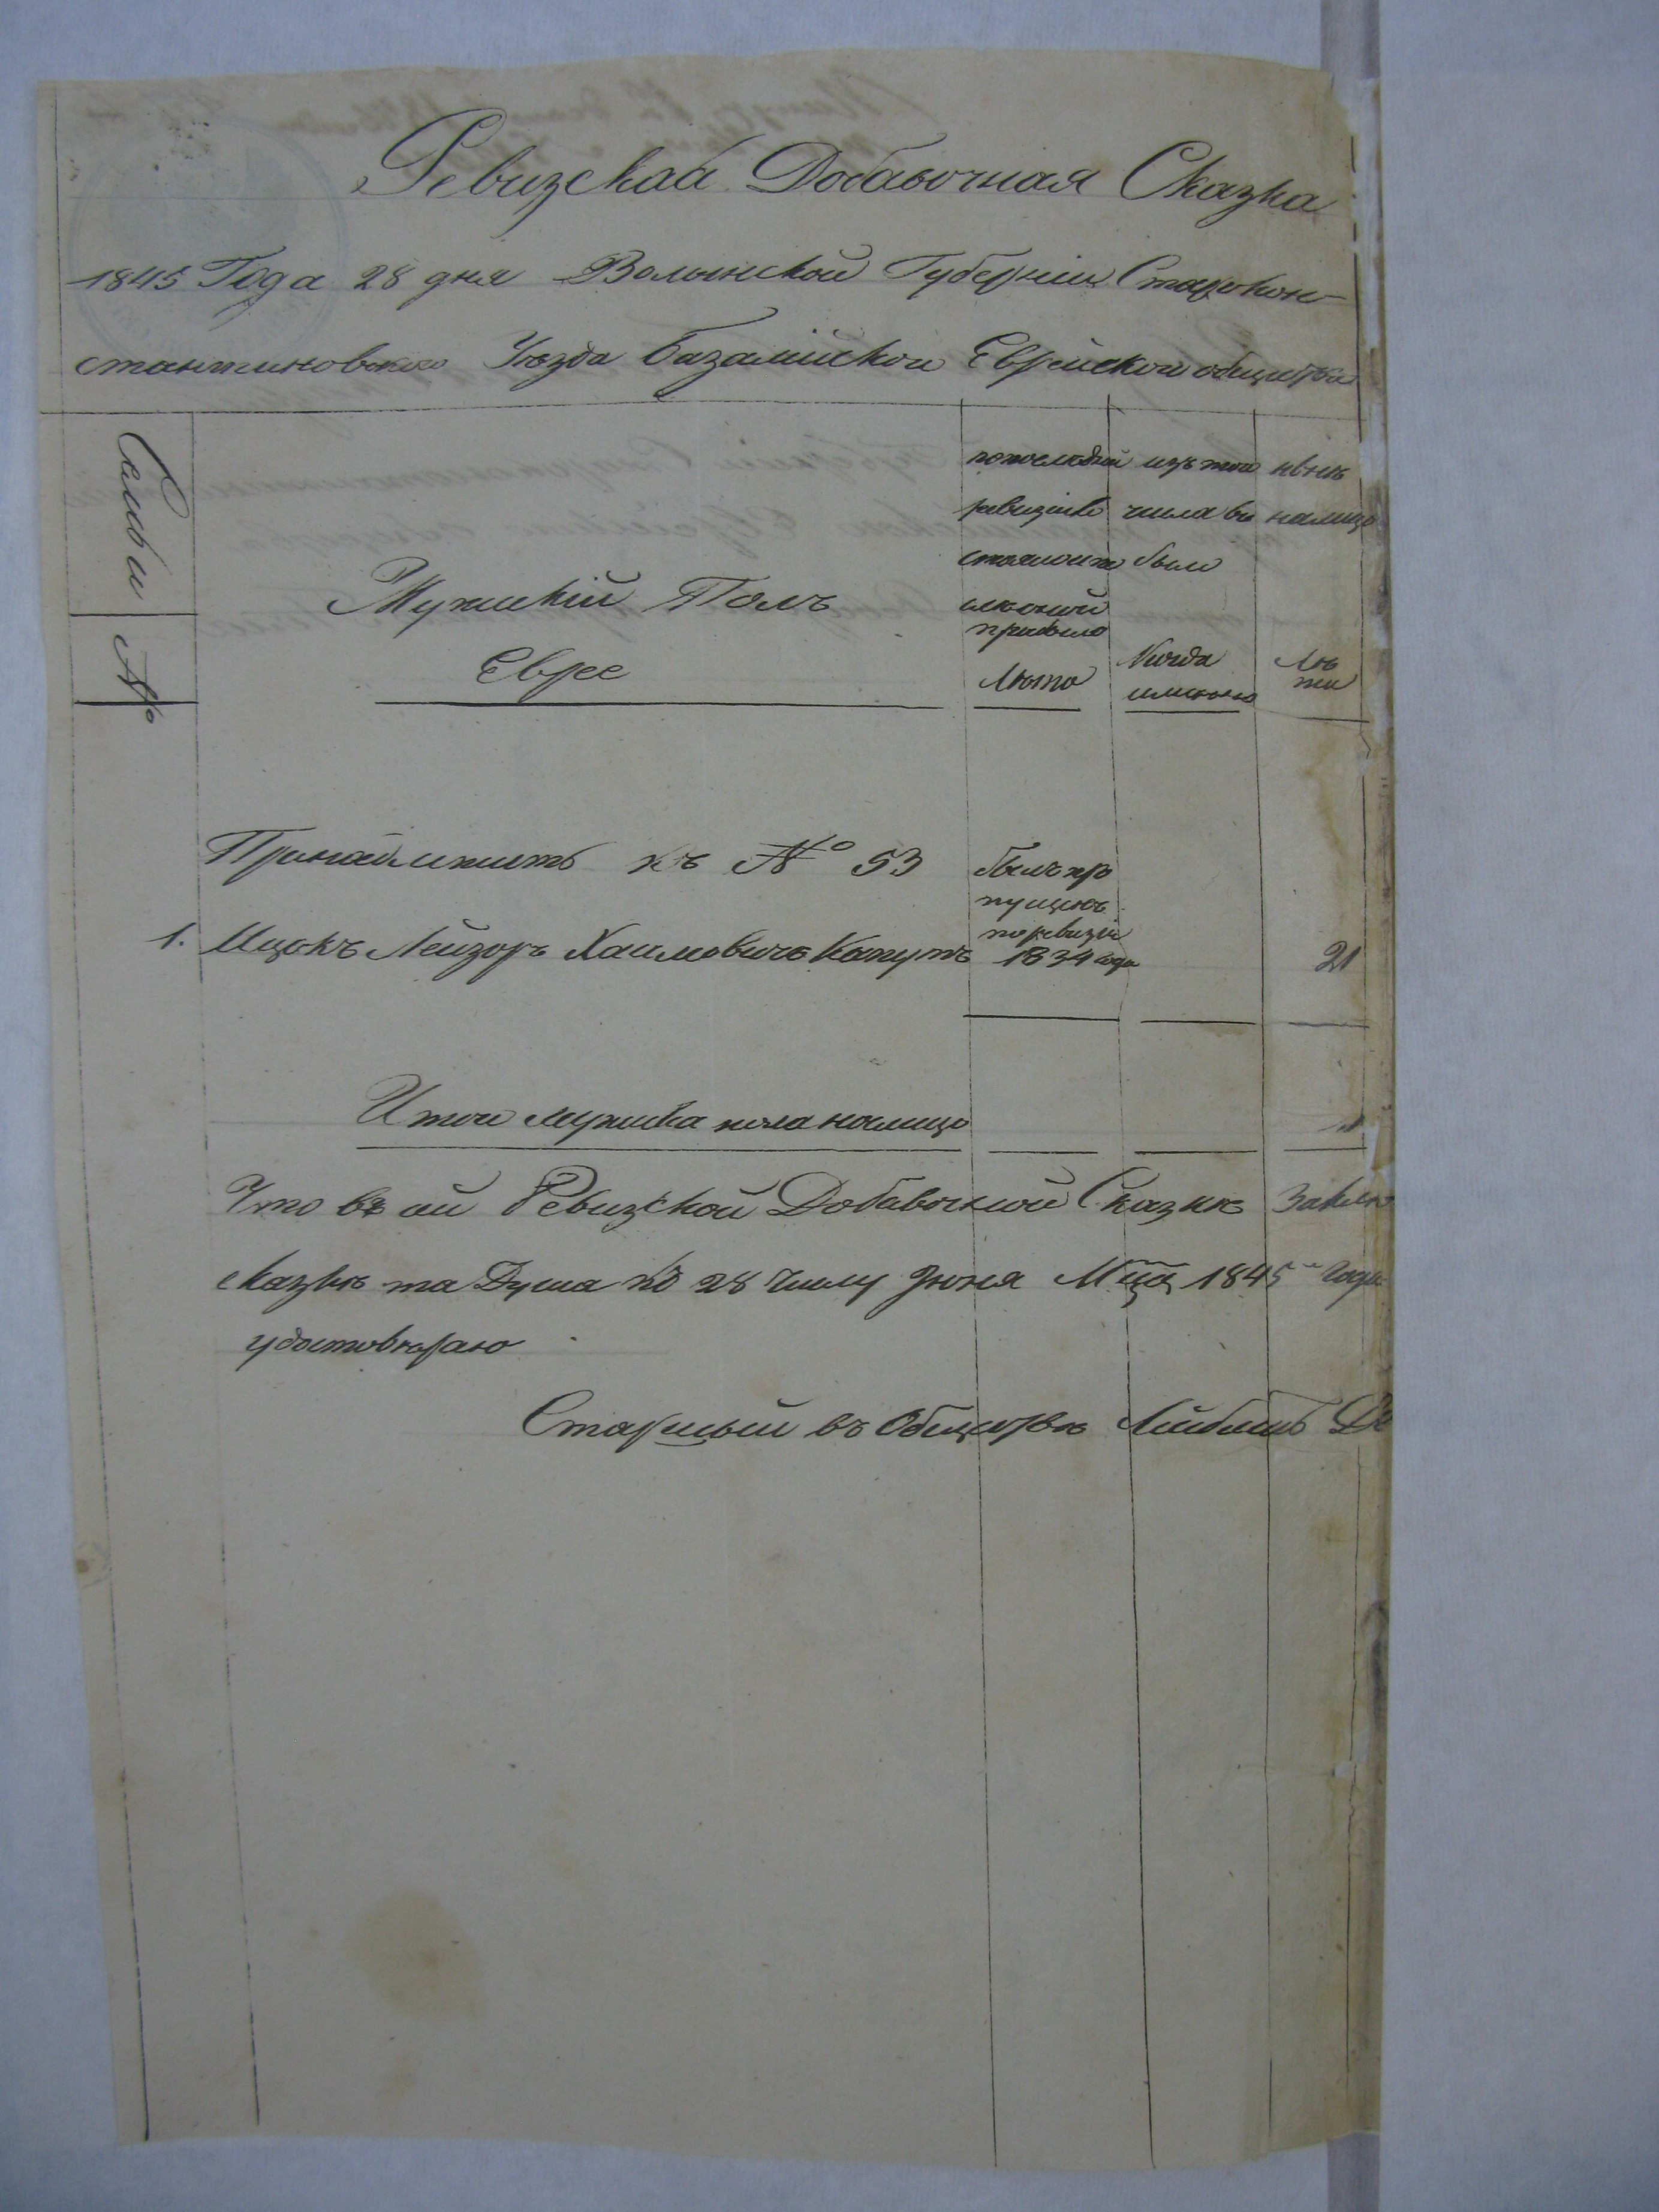 Ревизская Добавочная Сказка
1845 Года 28 дня Волынской Губерніи Старокон-
стантиновского Уезда Базалійской Еврейской общества
Семьи
№
Мужский Полъ
Еврее
попоследней
ревизіи
состояло и
прибыло
Лета
изъ того
числа вы
было
Когда
именно
ныне
налицо
Ле
та
Принадлежитъ къ № 53
1. Ицыкъ Лейзоръ Хаимовичъ Капутъ
былъ про
пущенъ
поревизіи
1834 года
21
Итого мужска пола налицо
1
Что въ сей Ревизской Добавочной Сказке
сказке та Душа по 28 Числу Іюня Мца 1845 года
удостоверяю
Старшый въ Обществе Лейбишъ